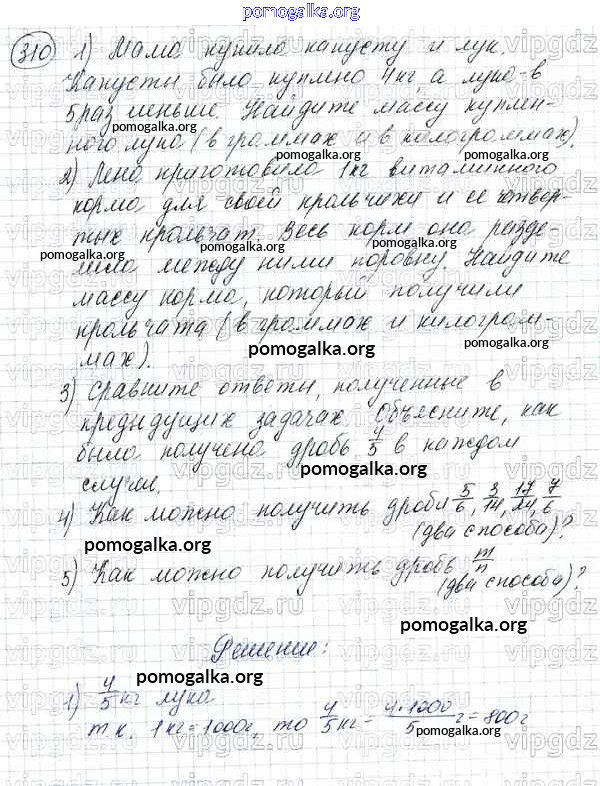 pomogalka.org
310 1) Мама купила капусту и лук.
Капусты было куплено 4кг, а лука - в
5 раз меньше. Найдите массу куплен-
ного лука (в граммах и в килограммах).
2) Лена приготовила 1кг витаминного
корма для своей крольчихи и ее четвер-
тых крольчат. Весь корм она разде-
лила между ними поровну. Найдите
массу корма, который получили
крольчата (в граммах и килограм-
мах).
pomogalka.org
3) Сравните ответы, полученные в
предыдущих задачах. Объясните, как
была получена дробь 4/5 в каждом
случае.
pomogalka.org
4) Как можно получить дроби 5/6, 3/14, 17/24, 7/6
(два способа)?
pomogalka.org
5) Как можно получить дробь m/n
(два способа)?
pomogalka.org
Решение:
pomogalka.org
1) 4/5 кг лука
т.к. 1кг = 1000г, то 4/5 кг = 4·1000/5 г = 800г